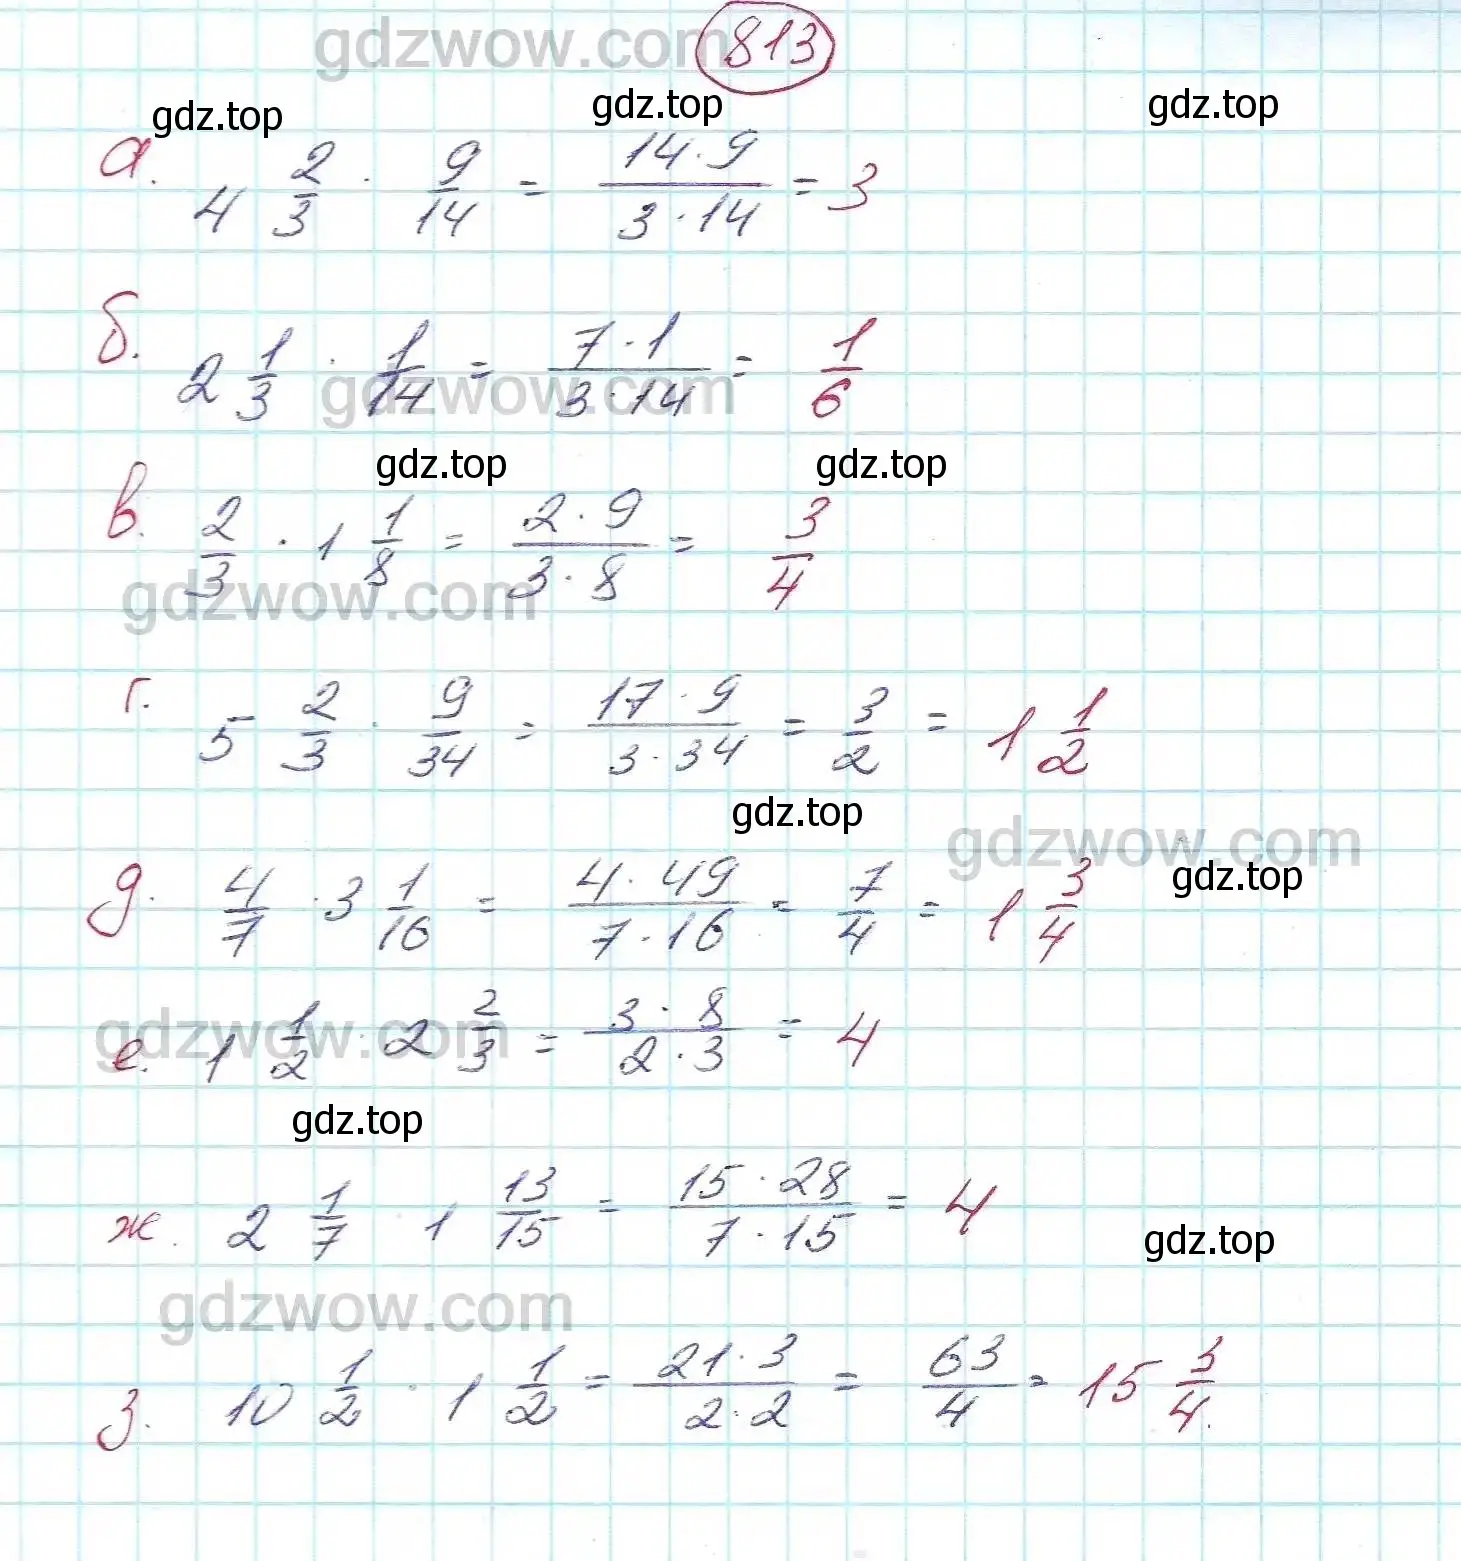 gdzwow.com 813
gdz.top gdz.top gdz.top
а. 4 2/3 · 9/14 = 14·9/3·14 = 3
б. 2 1/3 · 1/14 = 7·1/3·14 = 1/6
gdzwow.com
gdz.top gdz.top
в. 2/3 · 1 1/8 = 2·9/3·8 = 3/4
gdzwow.com
г. 5 2/3 · 9/34 = 17·9/3·34 = 3/2 = 1 1/2
gdz.top gdzwow.com
gdz.top
д. 4/7 · 3 1/16 = 4·49/7·16 = 7/4 = 1 3/4
gdzwow.com
е. 1 1/2 · 2 2/3 = 3·8/2·3 = 4
gdz.top
ж. 2 1/7 · 1 13/15 = 15·28/7·15 = 4
gdz.top
gdzwow.com
з. 10 1/2 · 1 1/2 = 21·3/2·2 = 63/4 = 15 3/4.